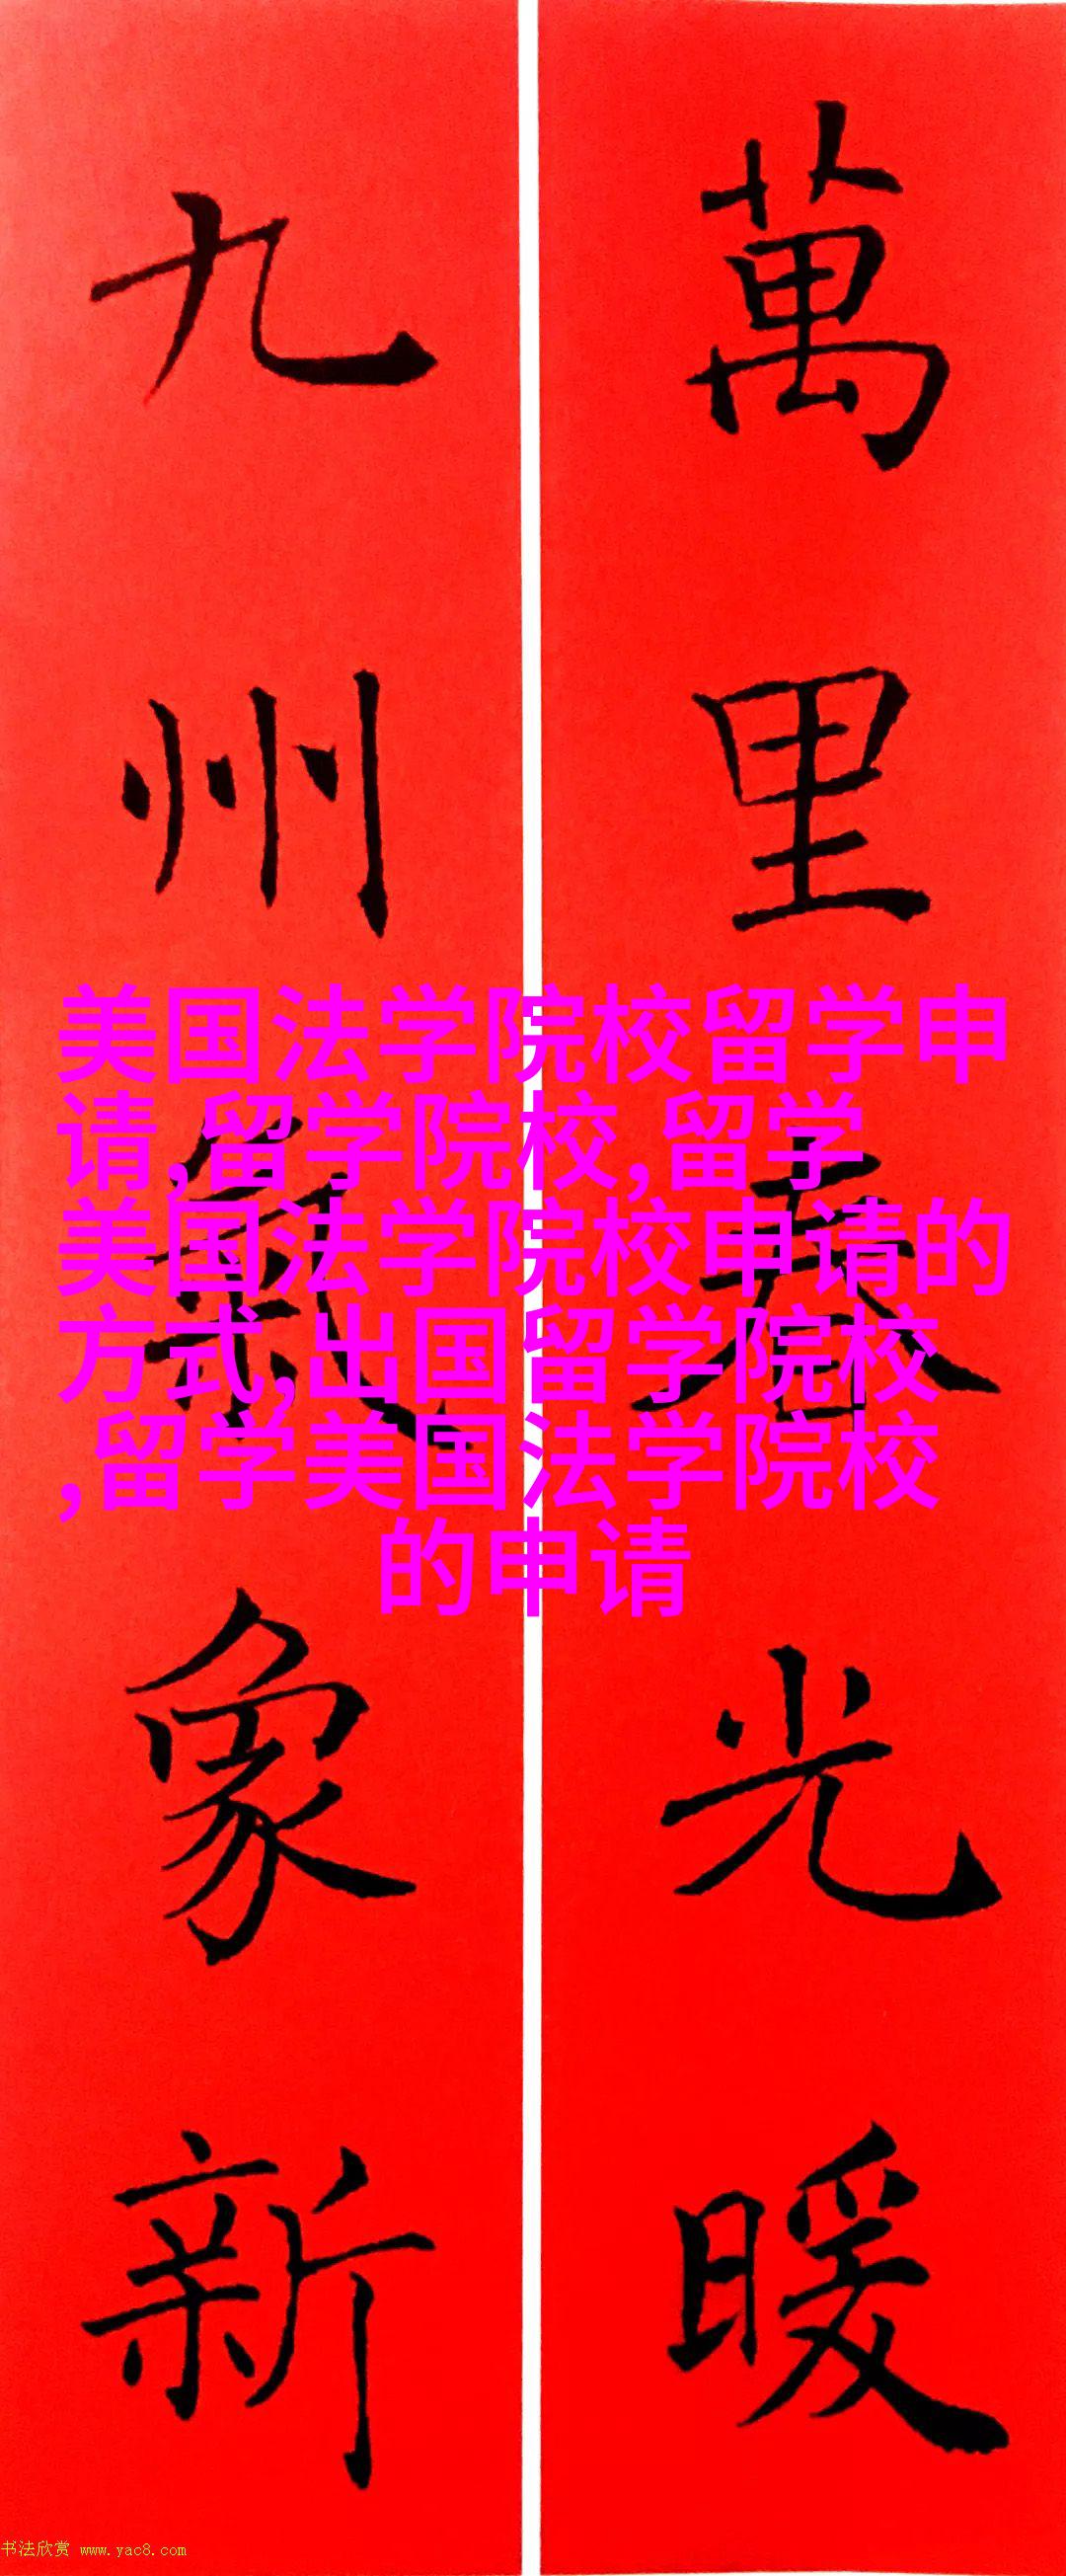 萬里春光暖
九州氣象新
美国法学院校留学申
请,留学院校,留学
美国法学院校申请的
方式,出国留学院校
,留学美国法学院校
的申请
书法欣赏 www.yac8.com